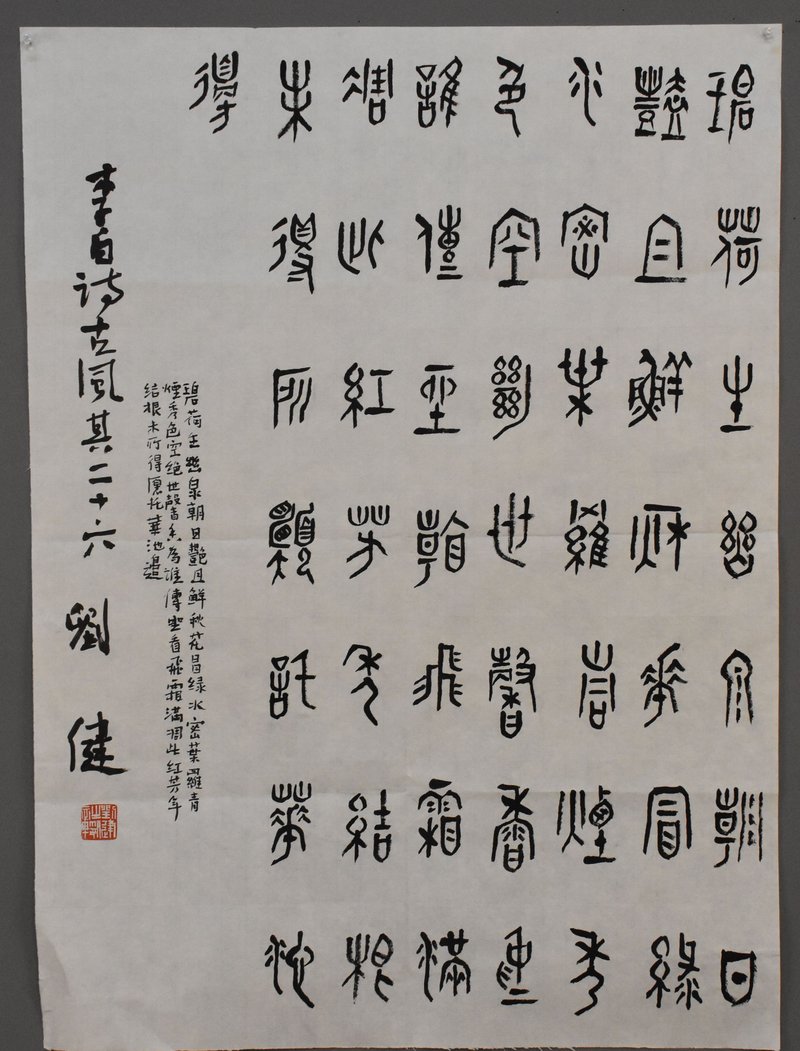 碧荷生幽泉朝日
豔且鮮秋華冒綠
水密葉羅青煙秀
色空絕世馨香
誰傳坐看飛霜滿
凋此紅芳年結根
未得所願託華池
邊
碧荷生幽泉朝日艷且鮮秋花冒绿水密葉羅青
煙秀色空绝世馨香為谁傳坐看飛霜满凋此红芳年
结根未所得愿托華池邊
李白诗古風其二十六 劉健